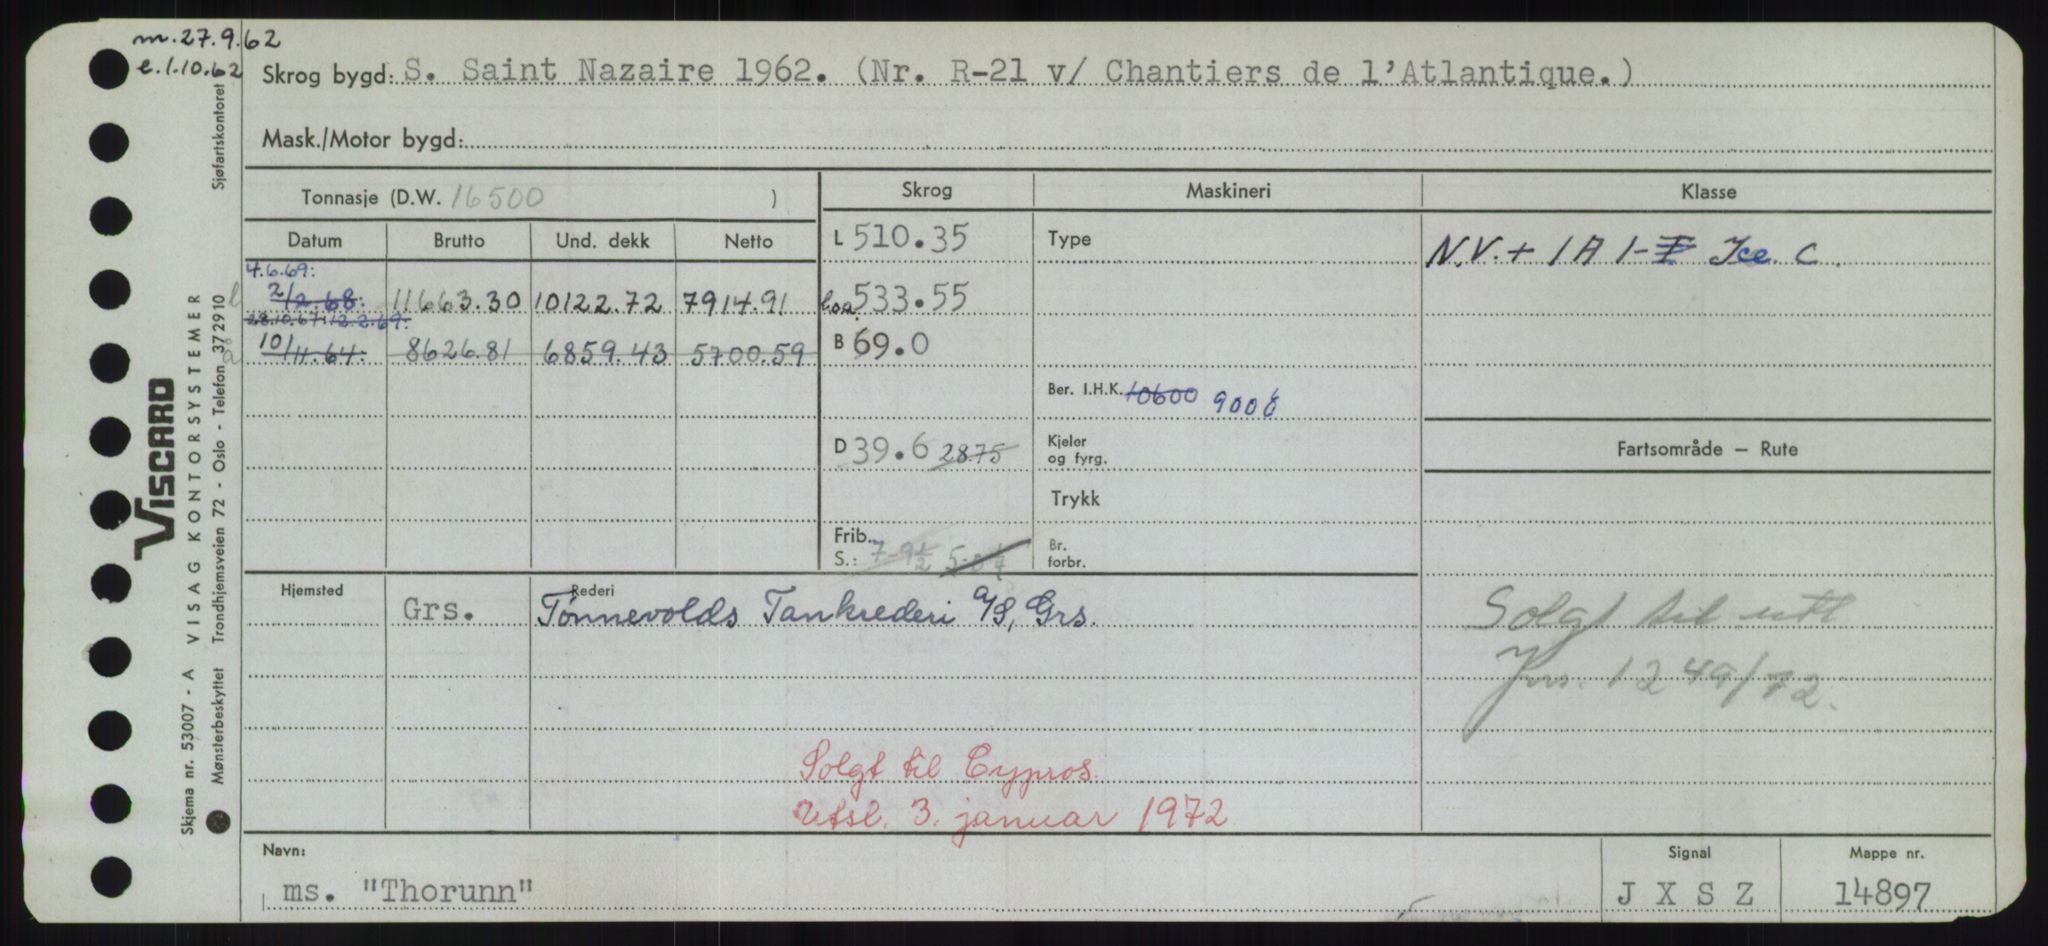 m. 27.9.62
e. 1.10.62
Skrog bygd: S. Saint Nazaire 1962. (Nr. R-21 v/ Chantiers de l'Atlantique.)
Mask./Motor bygd:
Tonnasje (D.W. 16500 )
Skrog Maskineri Klasse
Datum Brutto Und. dekk Netto
L 510.35 Type N.V. + 1A1-I Ice. C.
4.6.69:
2/2.68. 11663.30 10122.72 7914.91 loa 533.55
28.10.67: 12.2.69:
10/11.64. 8626.81 6859.43 5700.59 B 69.0
Ber. I.H.K. 10600 9000
D 39.6 28.75 Kjeler og fyrg. Fartsområde — Rute
Trykk
Frib. S.: 7-9½ Br. forbr.
Hjemsted Rederi
Grs. Tønnevolds Tankrederi A/S, Grs.
Solgt til utl
Jnr. 1249/72.
Solgt til Cypros.
Utsl. 3. januar 1972
Navn: Signal Mappe nr.
ms. "Thorunn" J X S Z 14897
VISCARD
Skjema nr. 53007 - A VISAG KONTORSYSTEMER
Mønsterbeskyttet Trondhjemsveien 72 - Oslo - Telefon 372910 Sjøfartskontoret